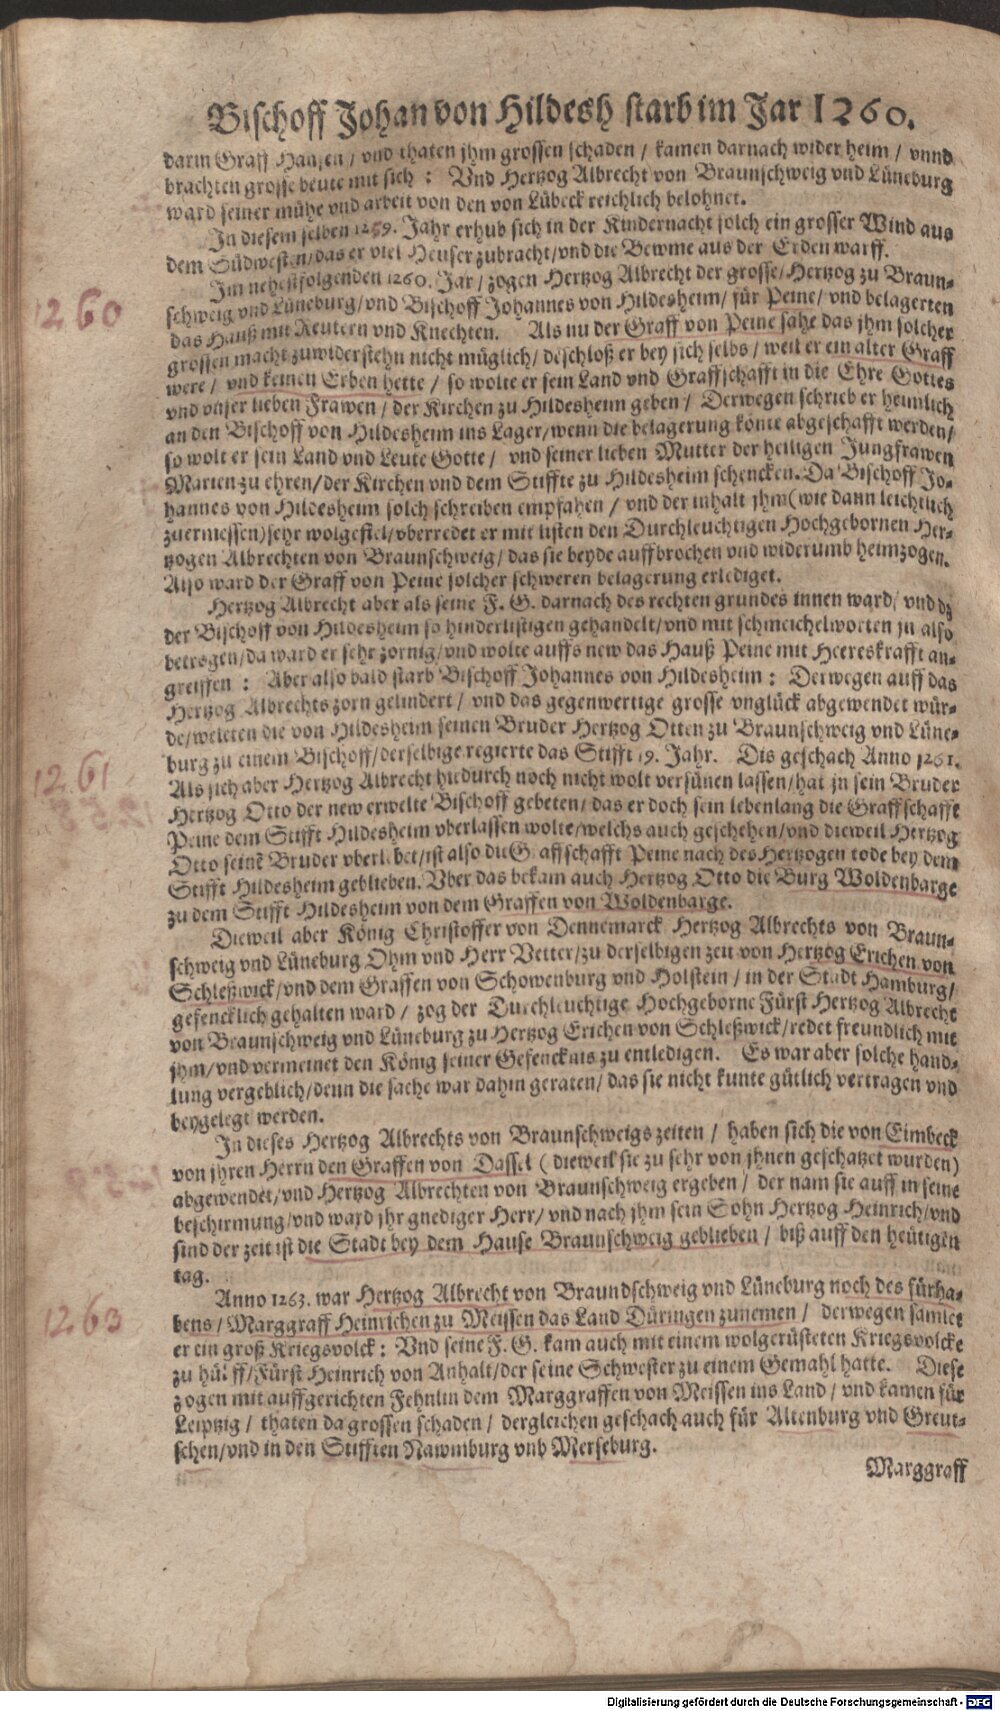 Bischoff Johan von Hildesh starb im Jar 1260.
darin Graff Hansen / vnd thaten jhm grossen schaden / kamen darnach wider heim / vnnd
brachten grosse beute mit sich : Vnd Hertzog Albrecht von Braunschweig vnd Lüneburg
ward seiner mühe vnd arbeit von den von Lübeck reichlich belohnet.
In diesem selben 1259. Jahr erhub sich in der Kindernacht solch ein grosser Wind aus
dem Südwesten / das er viel Heuser zubracht / vnd die Bewme aus der Erden warff.
1260
Im nehestfolgenden 1260. Jar / zogen Hertzog Albrecht der grosse / Hertzog zu Braun-
schweig vnd Lüneburg / vnd Bischoff Johannes von Hildesheim / für Peine / vnd belagerten
das Hauß mit Reutern vnd Knechten. Als nu der Graff von Peine sahe das jhm solcher
grossen macht zuwiderstehn nicht müglich / beschloß er bey sich selbs / weil er ein alter Graff
were / vnd keinen Erben hette / so wolte er sein Land vnd Graffschafft in die Ehre Gottes
vnd vnser lieben Frawen / der Kirchen zu Hildesheim geben / Derwegen schrieb er heimlich
an den Bischoff von Hildesheim ins Lager / wenn die belagerung könte abgeschafft werden /
so wolt er sein Land vnd Leute Gotte / vnd seiner lieben Mutter der heiligen Jungfrawen
Marien zu ehren / der Kirchen vnd dem Stiffte zu Hildesheim schencken. Da Bischoff Jo-
hannes von Hildesheim solch schreiben empfahen / vnd der inhalt jhm (wie dann leichtlich
zuermessen) sehr wolgefiel / vberredet er mit listen den Durchleuchtigen Hochgebornen Her-
tzogen Albrechten von Braunschweig / das sie beyde auffbrochen vnd widerumb heimzogen.
Also ward der Graff von Peine solcher schweren belagerung erlediget.
Hertzog Albrecht aber als seine F. G. darnach des rechten grundes innen ward / vnd dz
der Bischoff von Hildesheim so hinderlistigen gehandelt / vnd mit schmeichelworten jn also
betrogen / da ward er sehr zornig / vnd wolte auffs new das Hauß Peine mit Heereskrafft an-
greiffen : Aber also bald starb Bischoff Johannes von Hildesheim : Derwegen auff das
Hertzog Albrechts zorn gelindert / vnd das gegenwertige grosse vnglück abgewendet wür-
de / weleten die von Hildesheim seinen Bruder Hertzog Otten zu Braunschweig vnd Lüne-
1261
burg zu einem Bischoff / derselbige regierte das Stifft 19. Jahr. Dis geschach Anno 1261.
Als sich aber Hertzog Albrecht hiedurch noch nicht wolt versünen lassen / hat jn sein Bruder
Hertzog Otto der new erwelte Bischoff gebeten / das er doch sein lebenlang die Graffschafft
Peine dem Stifft Hildesheim vberlassen wolte / welchs auch geschehen / vnd dieweil Hertzog
Otto seinē Bruder vberlebet / ist also die Graffschafft Peine nach des Hertzogen tode bey dem
Stifft Hildesheim geblieben. Vber das bekam auch Hertzog Otto die Burg Woldenbarge
zu dem Stifft Hildesheim von dem Graffen von Woldenbarge.
Dieweil aber König Christoffer von Dennemarck Hertzog Albrechts von Braun-
schweig vnd Lüneburg Ohm vnd Herr Vetter / zu derselbigen zeit von Hertzog Erichen von
Schleßwick / vnd dem Graffen von Schowenburg vnd Holstein / in der Stadt Hamburg /
gefencklich gehalten ward / zog der Durchleuchtige Hochgeborne Fürst Hertzog Albrecht
von Braunschweig vnd Lüneburg zu Hertzog Erichen von Schleßwick / redet freundlich mit
jhm / vnd vermeinet den König seiner Gefencknis zu entledigen. Es war aber solche hand-
lung vergeblich / denn die sache war dahin geraten / das sie nicht kunte gütlich vertragen vnd
beygelegt werden.
In dieses Hertzog Albrechts von Braunschweigs zeiten / haben sich die von Eimbeck
von jhren Herrn den Graffen von Dassel (dieweil sie zu sehr von jhnen geschatzet wurden)
abgewendet / vnd Hertzog Albrechten von Braunschweig ergeben / der nam sie auff in seine
beschirmung / vnd ward jhr gnediger Herr / vnd nach jhm sein Sohn Hertzog Heinrich / vnd
sind der zeit ist die Stadt bey dem Hause Braunschweig geblieben / biß auff den heütigen
tag.
1263
Anno 1263. war Hertzog Albrecht von Braundschweig vnd Lüneburg noch des fürha-
bens / Marggraff Heinrichen zu Meissen das Land Düringen zunemen / derwegen samlet
er ein groß Kriegsvolck : Vnd seine F. G. kam auch mit einem wolgerüsteten Kriegsvolcke
zu hülff / Fürst Heinrich von Anhalt / der seine Schwester zu einem Gemahl hatte. Diese
zogen mit auffgerichten Fehnlin dem Marggraffen von Meissen ins Land / vnd kamen für
Leiptzig / thaten da grossen schaden / dergleichen geschach auch für Altenburg vnd Greut-
schen / vnd in den Stifften Nawmburg vnb Merseburg.
Marggraff
Digitalisierung gefördert durch die Deutsche Forschungsgemeinschaft - DFG